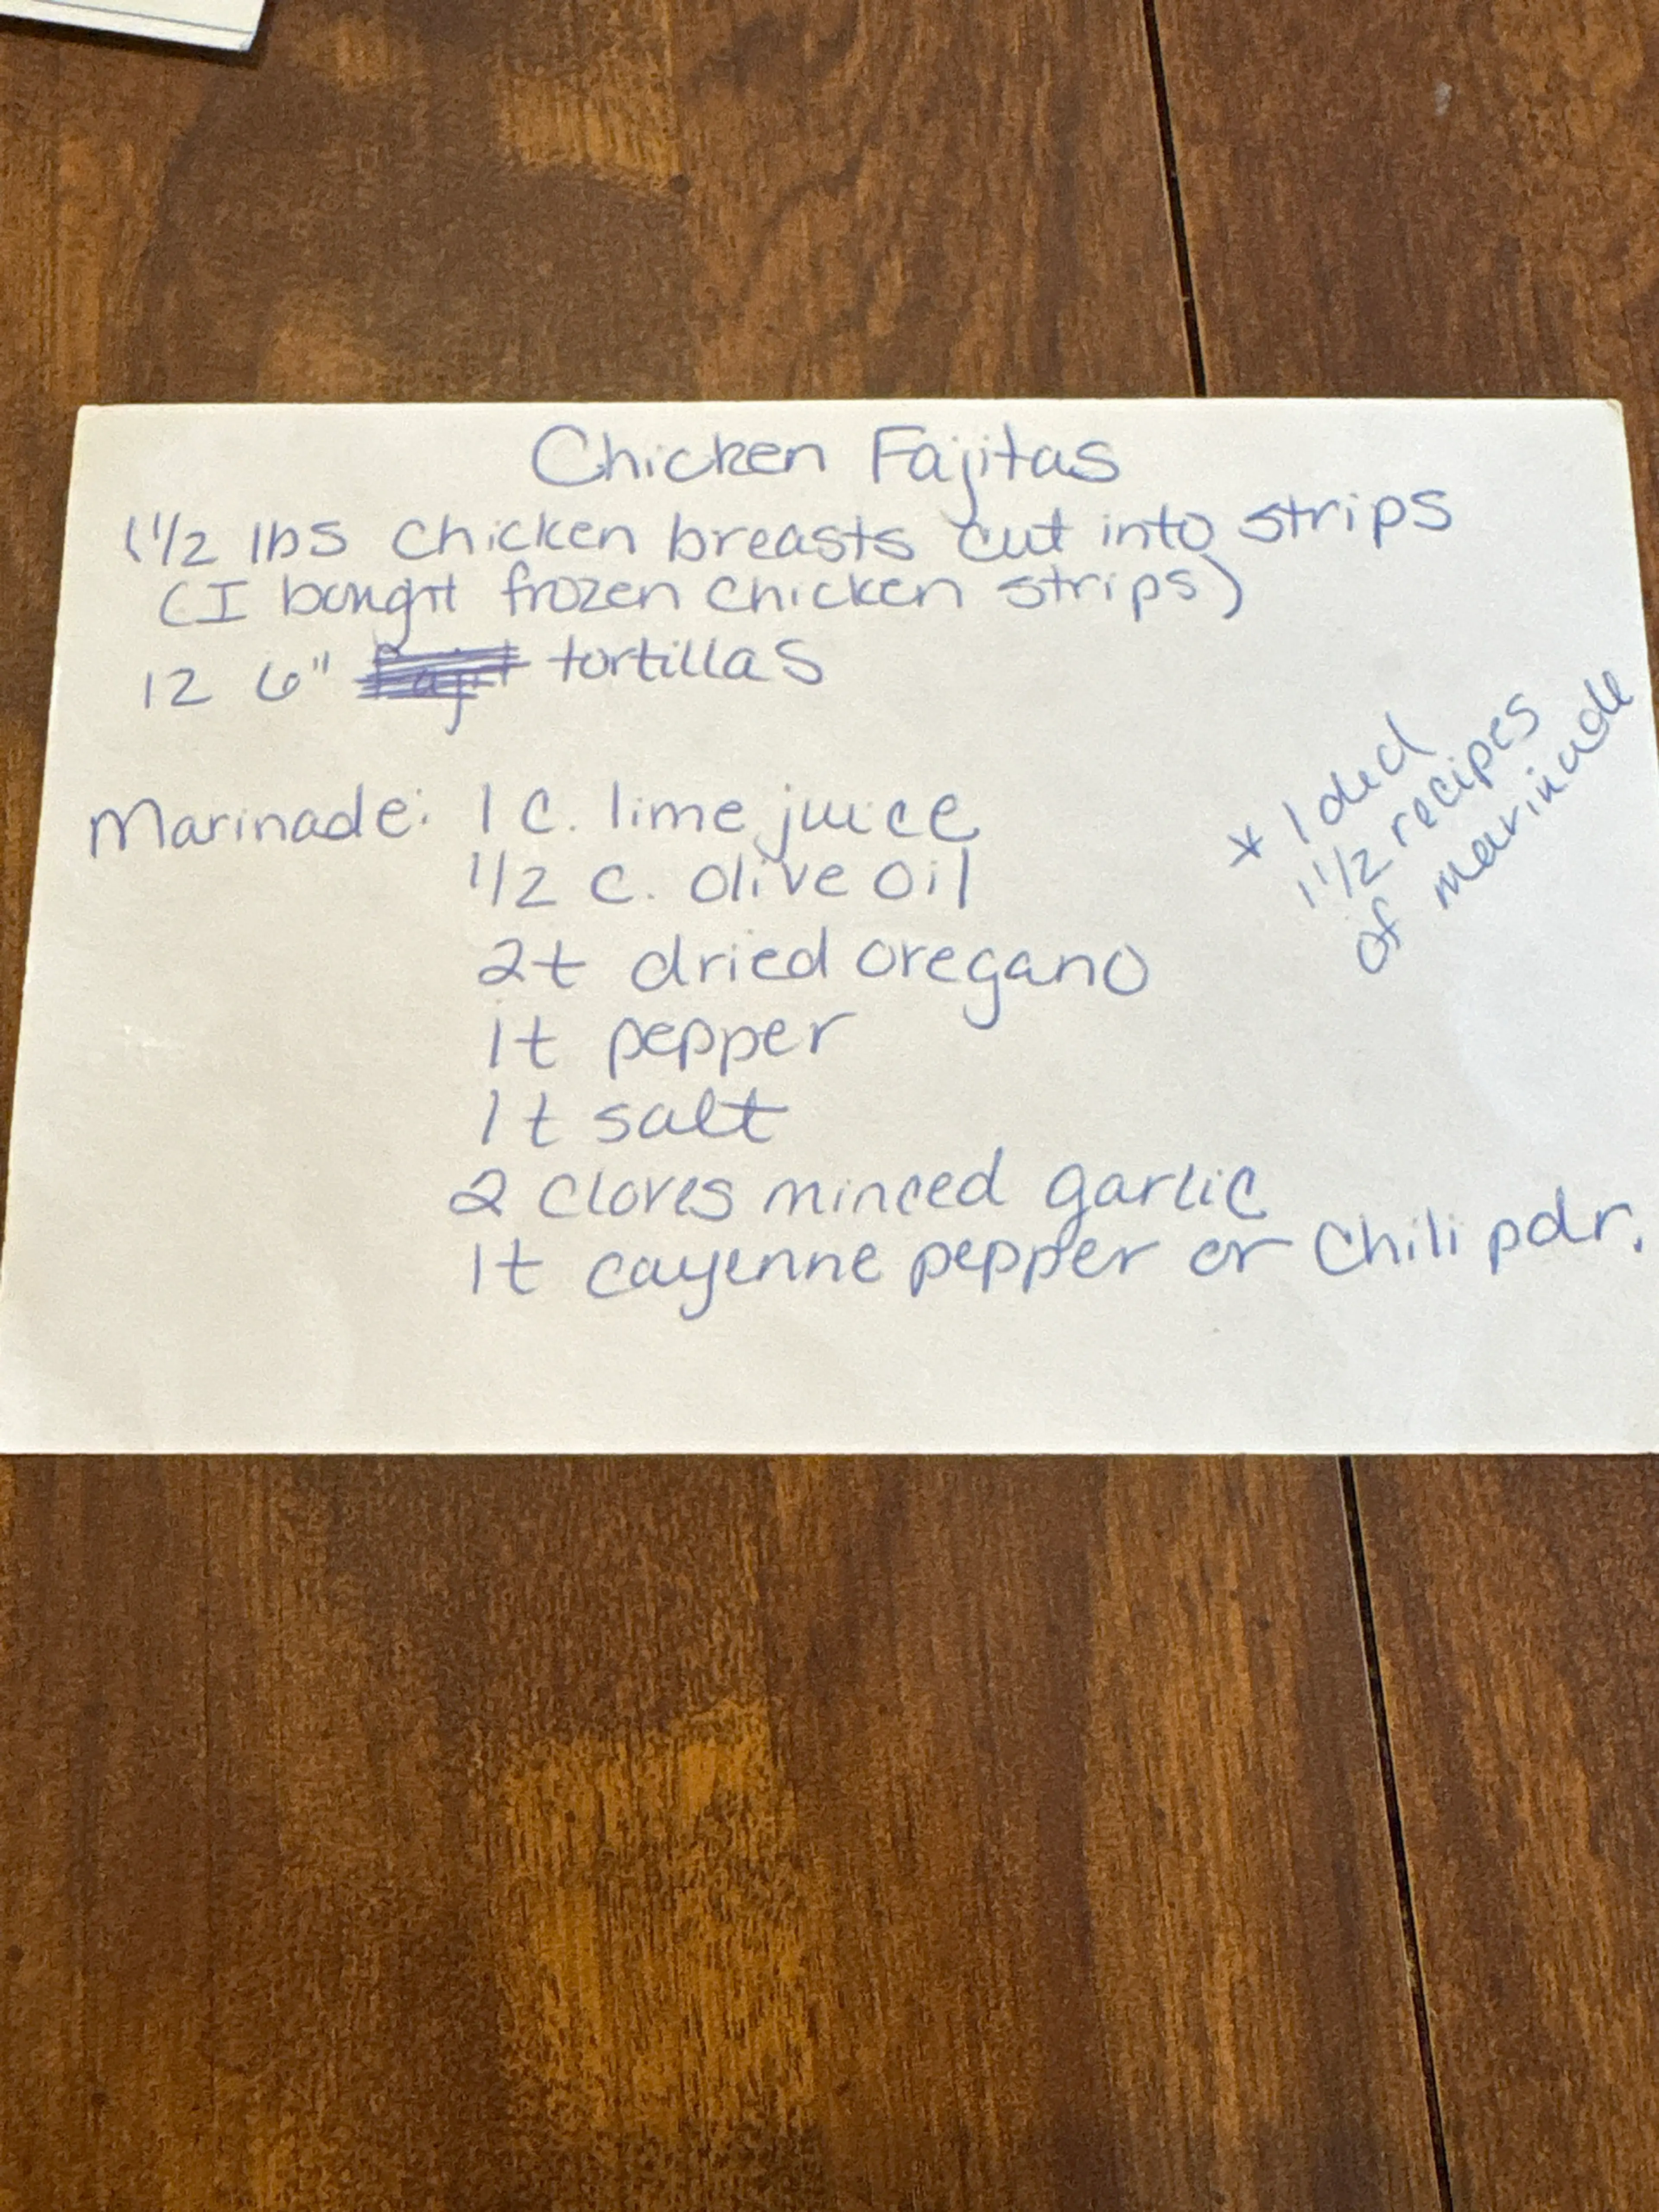 Chicken Fajitas
1 1/2 lbs chicken breasts cut into strips
(I bought frozen chicken strips)
12 6" tortillas
* I did
1 1/2 recipes
of marinade
Marinade: 1 c. lime juice
1/2 c. olive oil
2t dried oregano
1t pepper
1t salt
2 cloves minced garlic
1t cayenne pepper or Chili pdr.